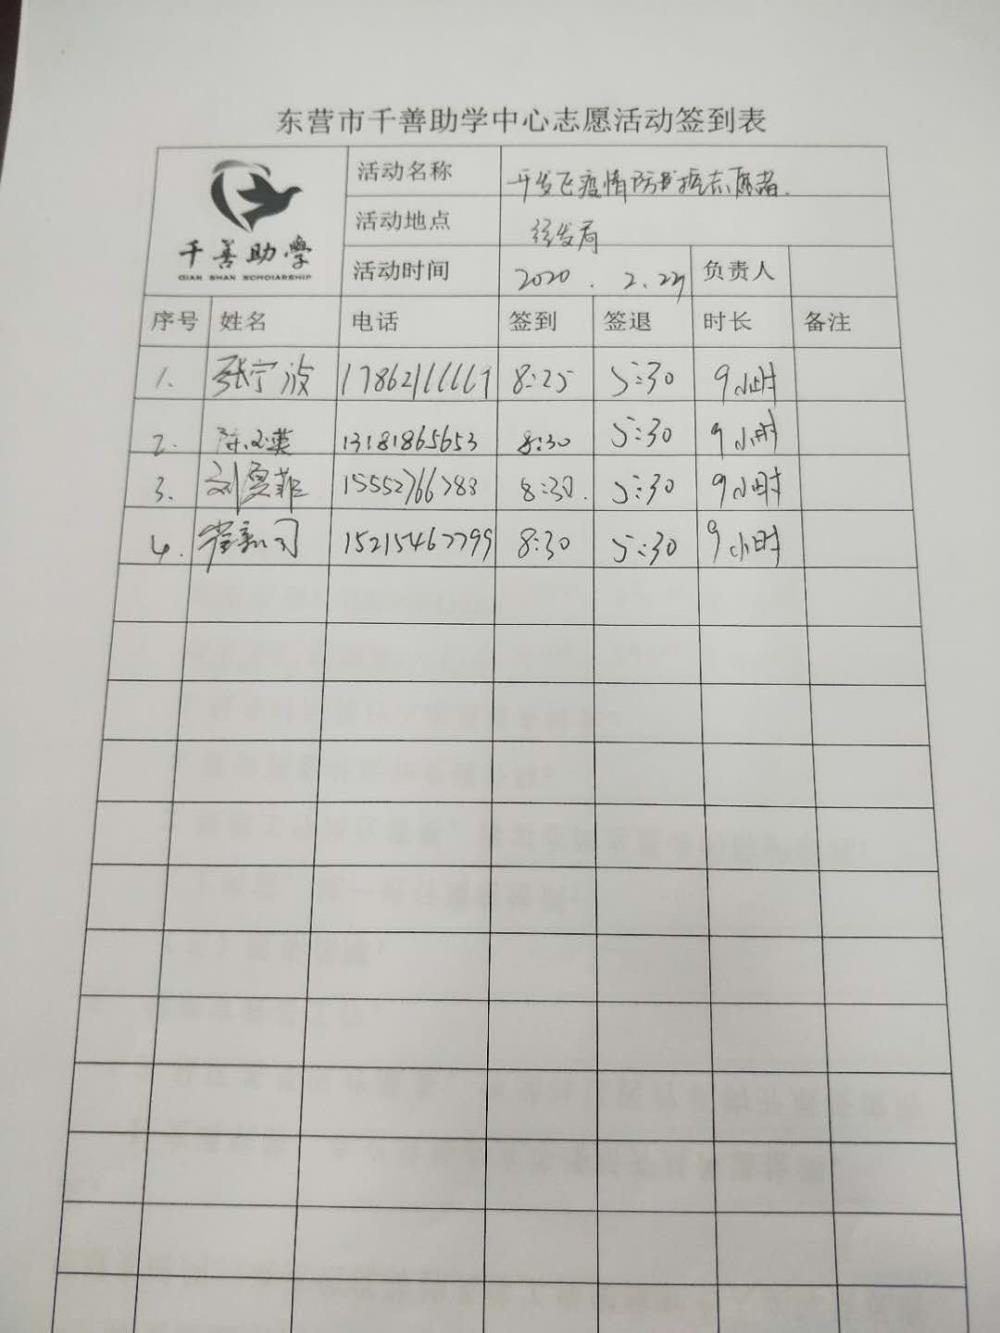 东营市千善助学中心志愿活动签到表
千善助学
QIAN SHAN SCHOLARSHIP
活动名称 开发区疫情防护抗志愿者.
活动地点 经发局
活动时间 2020 . 2. 负责人
序号 姓名 电话 签到 签退 时长 备注
1. 张宁波 8:25 5:30 9小时
2. 陈玉英 13181865653 8:30 5:30 9小时
3. 刘 菲 15552766783 8:30. 5:30 9小时
4. 崔 司 15215467799 8:30 5:30 9小时